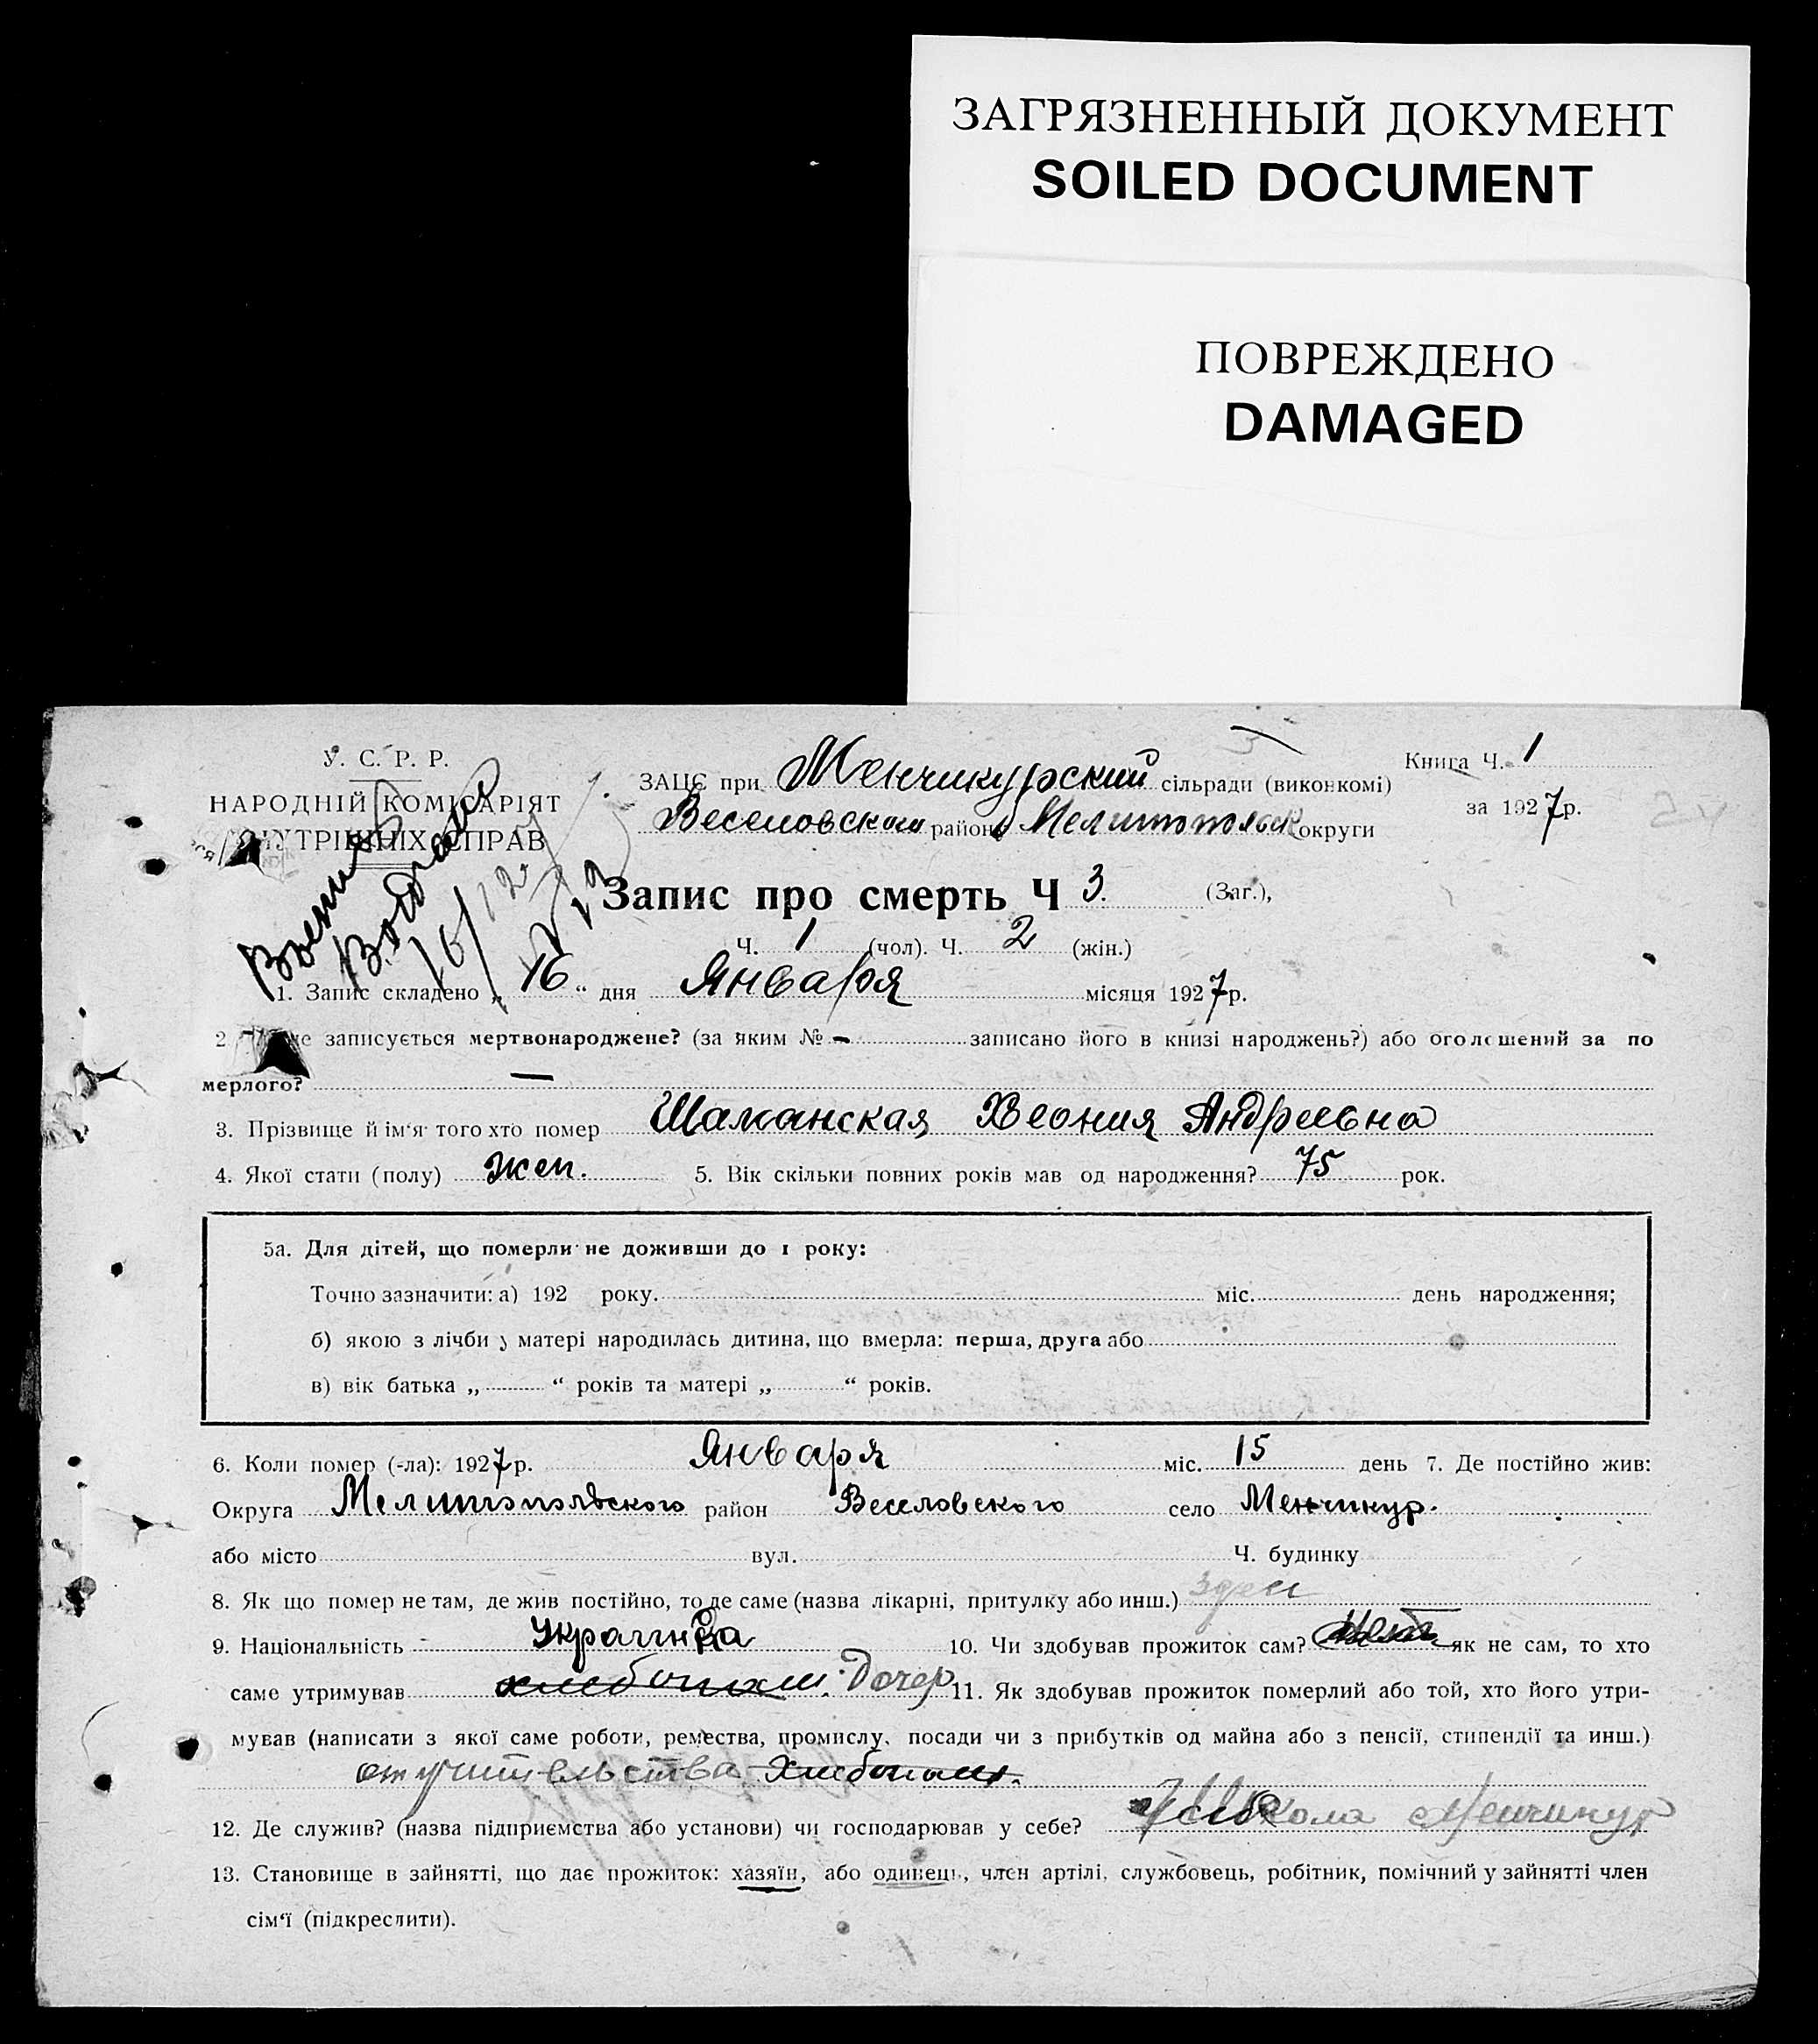 ЗАГРЯЗНЕННЫЙ ДОКУМЕНТ
SOILED DOCUMENT
ПОВРЕЖДЕНО
DAMAGED
У. С. Р. Р.
НАРОДНІЙ КОМІСАРІЯТ
ВНУТРІШНІХ СПРАВ
ЗАЦС при Менчикурский сільради (виконкомі)
Веселовском району Мелитопольск округи
Книга Ч. 1
за 1927 р.
Запис про смерть Ч 3. (Заг.),
Ч. 1 (чол). Ч. 2 (жін.)
1. Запис складено „ 16 “ дня Января місяця 1927 р.
2 не записується мертвонароджене? (за яким № - записано його в книзі народжень?) або оголошений за по
мерлого? —
3. Прізвище й ім'я того хто помер Шаманская Хеония Андреевна
4. Якої стати (полу) жен. 5. Вік скільки повних років мав од народження? 75 рок.
5а. Для дітей, що померли не доживши до 1 року:
Точно зазначити: а) 192 року. міс. день народження;
б) якою з лічби у матері народилась дитина, що вмерла: перша, друга або
в) вік батька „ “ років та матері „ “ років.
6. Коли помер (-ла): 1927 р. Января міс. 15 день 7. Де постійно жив:
Округа Мелитопольского район Веселовского село Менчикур.
або місто вул. Ч. будинку
8. Як що помер не там, де жив постійно, то де саме (назва лікарні, притулку або инш.)
9. Національність Украинка 10. Чи здобував прожиток сам? як не сам, то хто
саме утримував хлебопаш. Дочер 11. Як здобував прожиток померлий або той, хто його утри-
мував (написати з якої саме роботи, ремества, промислу, посади чи з прибутків од майна або з пенсії, стипендії та инш.)
от учительства Хлебопаш.
12. Де служив? (назва підприємства або установи) чи господарював у себе? Школа Менчикур
13. Становище в зайнятті, що дає прожиток: хазяїн, або одинець, член артілі, службовець, робітник, помічний у зайнятті член
сім'ї (підкреслити).